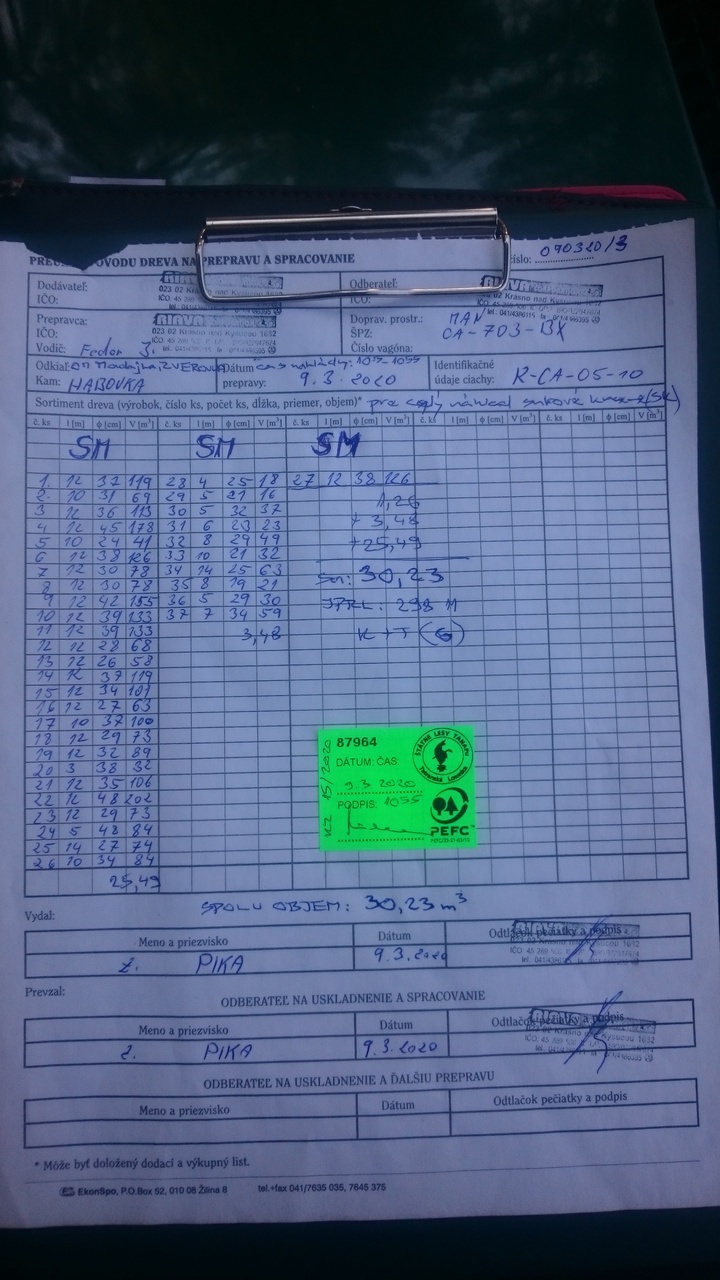 VODU DREVA NA PREPRAVU A SPRACOVANIE
číslo: 090320/3
Dodávateľ:
IČO:
023 02 Krásno nad Kysucou 1632
Odberateľ:
IČO:
Prepravca:
IČO:
023 02 Krásno nad Kysucou 1632
Vodič: Fedor J.
Doprav. prostr.: MAN
ŠPZ: CA-703-BX
Číslo vagóna:
Odkiaľ:
Kam: HABOVKA
Dátum
prepravy: 9.3.2020
čas nakládky:
Identifikačné
údaje ciachy: R-CA-05-10
Sortiment dreva (výrobok, číslo ks, počet ks, dĺžka, priemer, objem)*
č. ks l [m] ϕ [cm] V [m³] č. ks l [m] ϕ [cm] V [m³] č. ks l [m] ϕ [cm] V [m³] č. ks l [m] ϕ [cm] V [m³] č. ks l [m] ϕ [cm] V [m³]
SM SM SM
1. 12 37 119 28 4 25 18 27 12 38 126
2. 10 31 69 29 5 21 16 1,26
3 12 36 113 30 5 32 37 + 3,48
4 12 45 178 31 6 23 23 +25,49
5 10 24 41 32 8 29 49
6 12 38 126 33 10 21 32
7 12 30 78 34 14 25 63 SM: 30,23
8 12 30 78 35 8 19 21
9 12 42 155 36 5 29 30 JPRL: 298
10 12 39 133 37 7 34 59
11 12 39 133 3,48 K+T (6)
12 12 28 68
13 12 26 58
14 12 37 119
15 12 34 101
16 12 27 63
17 10 37 100
18 12 29 73
19 12 32 89
20 3 38 32
21 12 35 106
22 12 48 202
23 12 29 73
24 5 48 84
25 14 27 74
26 10 34 84
25,49
15/2020
87964
DÁTUM: ČAS:
9.3 2020
PODPIS: 1055
ŠTÁTNE LESY TANAPU
Tatranská Lomnica
PEFC™
SPOLU OBJEM: 30,23 m³
Vydal:
Meno a priezvisko Dátum Odtlačok pečiatky a podpis
Ľ. PIKA 9.3.2020
Prevzal:
ODBERATEĽ NA USKLADNENIE A SPRACOVANIE
Meno a priezvisko Dátum Odtlačok pečiatky a podpis
Ľ. PIKA 9.3.2020
ODBERATEĽ NA USKLADNENIE A ĎALŠIU PREPRAVU
Meno a priezvisko Dátum Odtlačok pečiatky a podpis
* Môže byť doložený dodací a výkupný list.
EkonSpo, P.O.Box 52, 010 08 Žilina 8 tel.+fax 041/7635 035, 7645 375